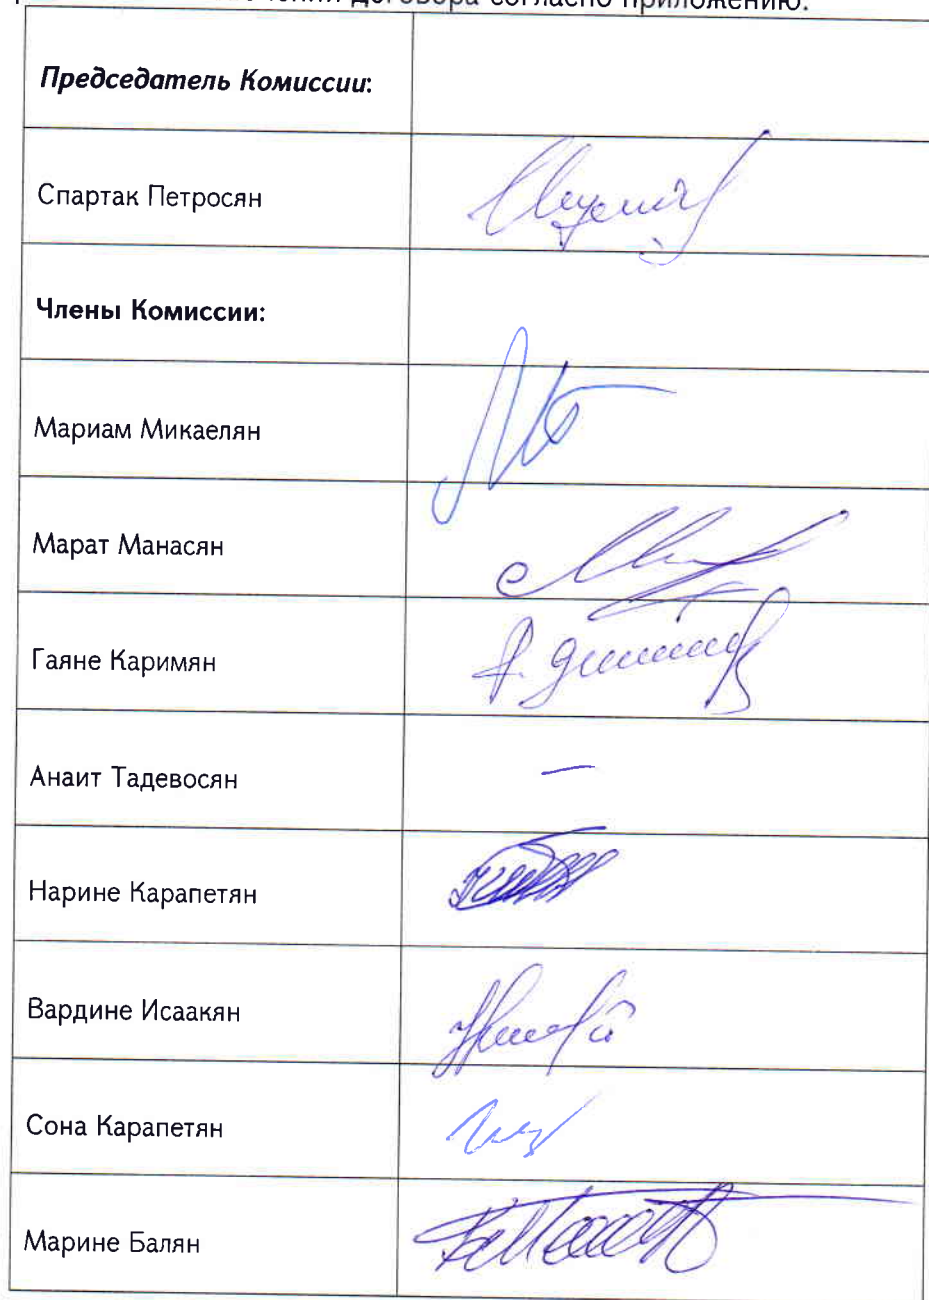 договора согласно приложению.
Председатель Комиссии:
Спартак Петросян
Члены Комиссии:
Мариам Микаелян
Марат Манасян
Гаяне Каримян
Анаит Тадевосян
–
Нарине Карапетян
Вардине Исаакян
Сона Карапетян
Марине Балян